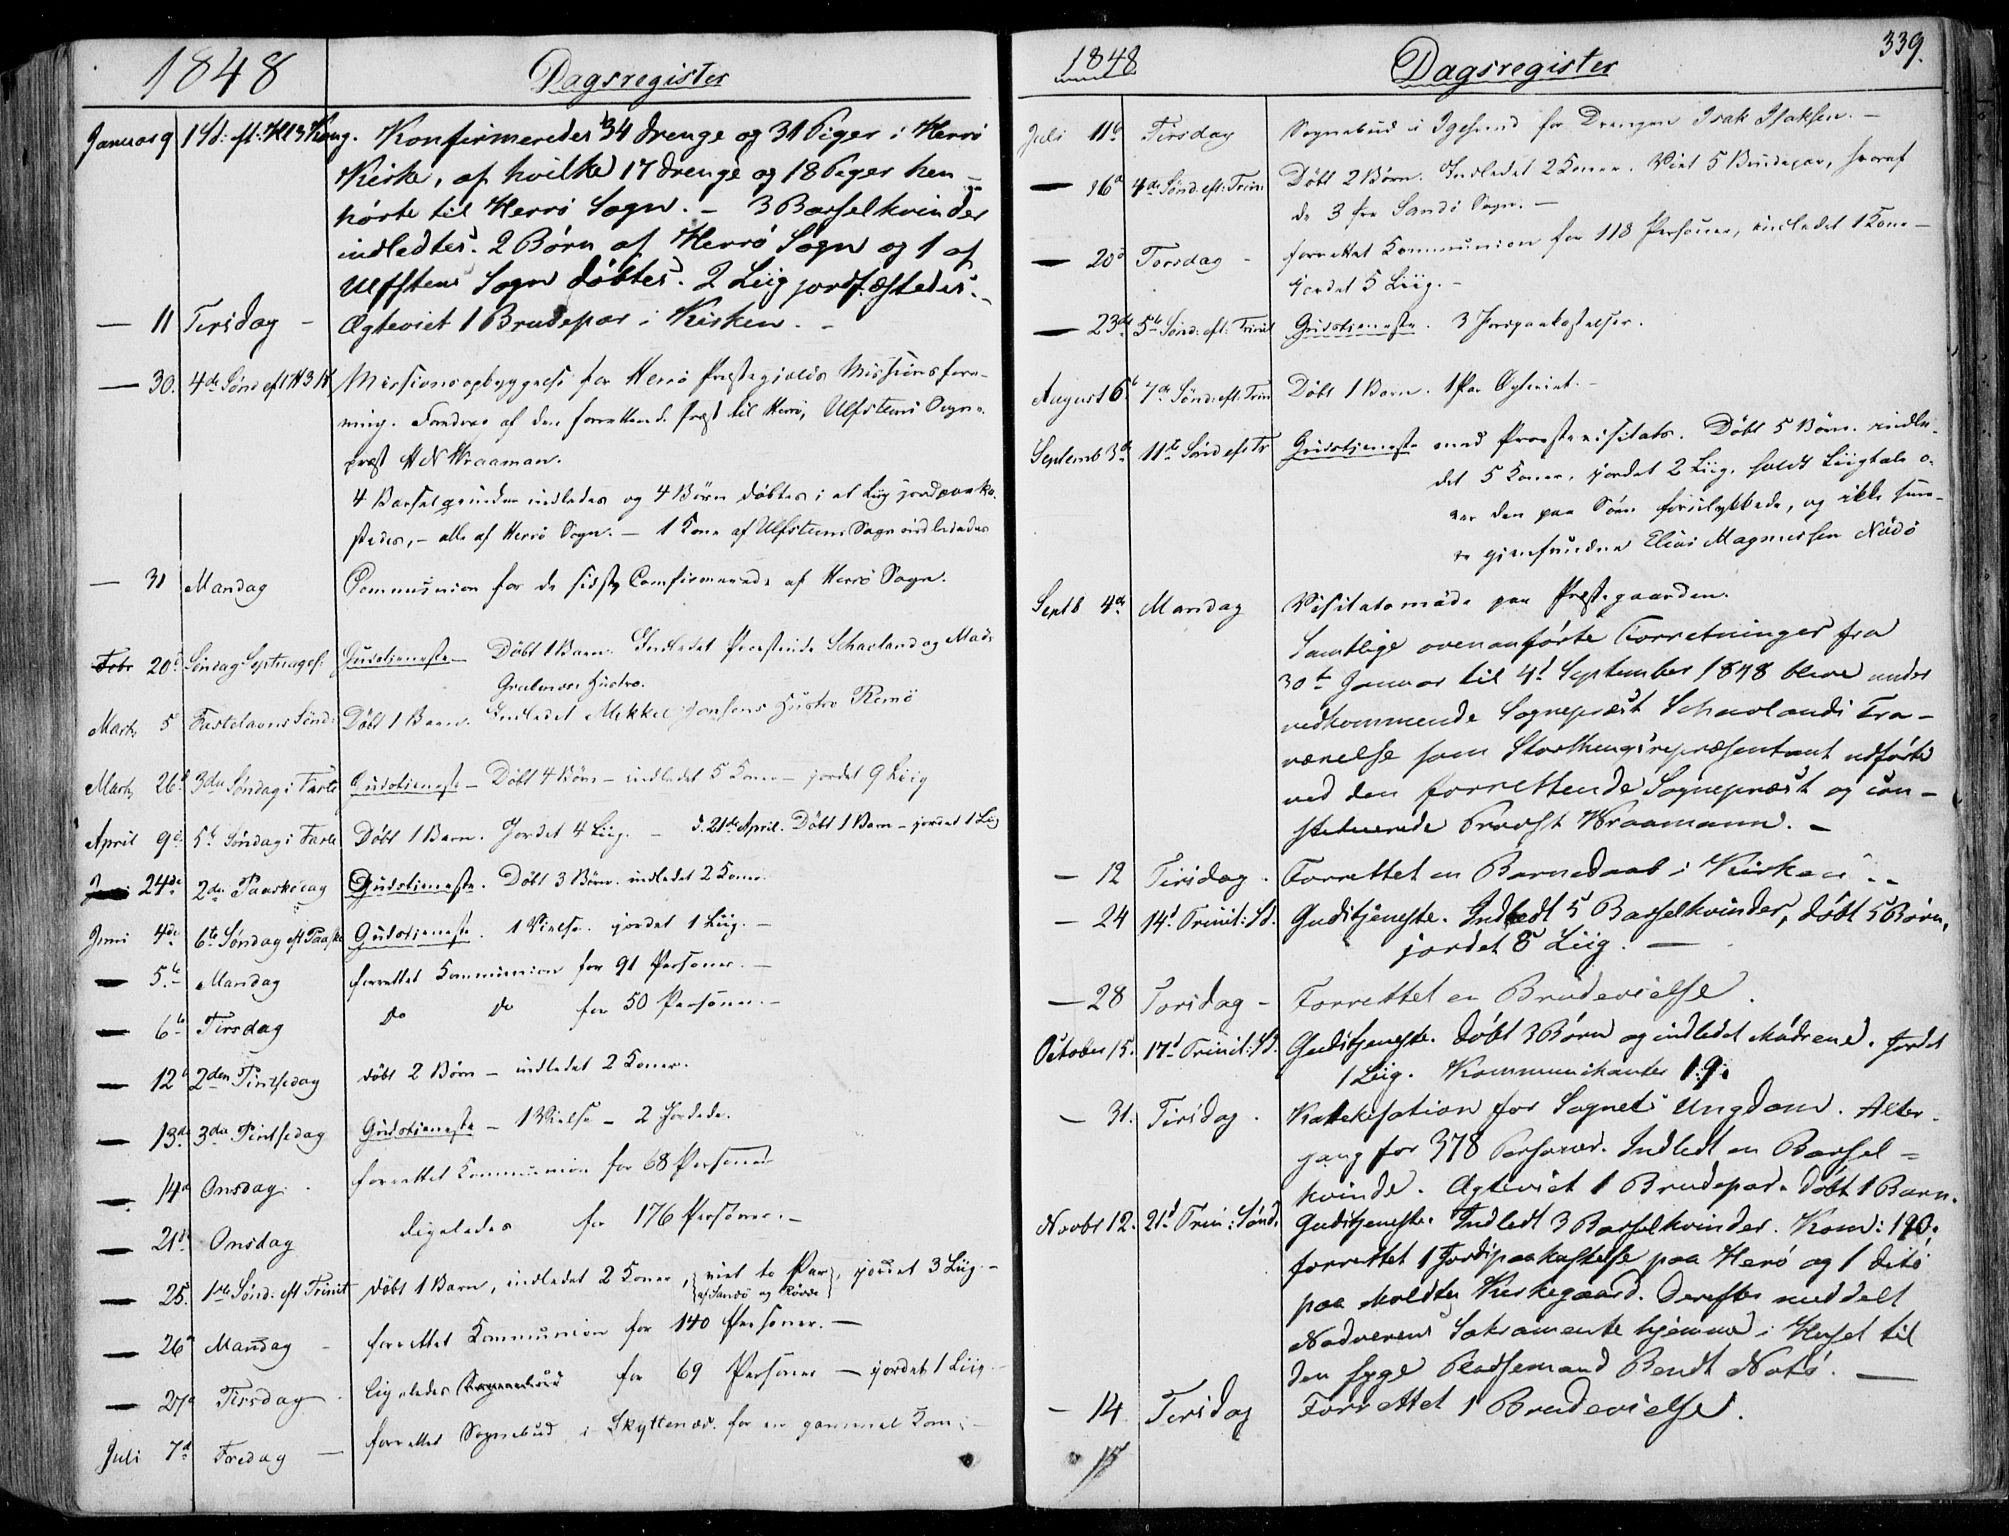 1848 Dagsregister
Januar 9 1 Sd: eft: H 3 Kong. Konfirmeredes 34 Drenge og 31 Piger i Herrö
Kirke, af hvilke 17 Drenge og 18 Piger hen-
hörte til Herrö Sogn. – 3 Barselkvinder
indledtes. 2 Börn af Herrö Sogn og 1 af
Ulfstens Sogn döbtes. 2 Liig jordfæstedes. –
— 11 Tirsdag – Ægteviet 1 Brudepar i Kirken. –
— 30. 4de Sönd eft H 3 K Missionsopbyggelse for Herrö Præstegjelds Missionsfore-
ning. Foredrag af den forrettende Præst til Herrö, Ulfsteens Sogne-
præst H N Wraaman.
4 Barselqvinder indledes og 4 Börn döbtes; et Liig jordpaaka-
stedes, – alle af Herrö Sogn. – 1 Kone af Ulfsteens Sogn indledades
— 31 Mandag Communion for de sidst Comfirmerede af Herrö Sogn.
Febr 20d Söndag Septuagesi: Gudstieneste – Döbt 1 Barn. Indledet Præstinde Schavland og Mads
Hustro.
Marts 5d Fastelavns Sönd: Döbt 1 Barn. Indledet Mikkel Jonsens Hustro Remö
Marts 26d 3die Söndag i Faste Gudstieneste – Döbt 4 Börn – indledet 5 Koner – jordet 9 Liig
April 9d 5te Söndag i Faste Döbt 1 Barn. Jordet 4 Liig. – d. 21de April. Döbt 1 Barn – jordet 1 Liig
24de 2den Paaskedag Gudstieneste. Döbt 3 Börn. indledet 2 Koner.
Juni 4de 6te Söndag eft Paaske Gudstieneste. 1 Vielse. jordet 1 Liig. –
— 5te Mandag forrettet Kommunion for 91 Personer. –
— 6te Tirsdag Do Do for 50 Personer. –
— 12t 2den Pintsedag döbt 2 Börn – indledet 2 Koner.
— 13de 3die Pintsedag Gudstieneste – 1 Vielse – 2 Jordede.
— 14d Onsdag. forrettet Communion for 68 Personer
— 21de Onsdag ligeledes for 176 Personer. –
— 25. 1ste Sönd: eft Trinit döbt 1 Barn, indledet 2 Koner, viet to Par, jordet 3 Liig. –
af Sandö og Rövde
— 26d Mandag – forrettet Kommunion for 140 Personer. –
— 27d Tirsdag. ligeledes Sognebud for 69 Personer – jordet 1 Liig.
Juli 7d Fredag — forrettet Sognebud i Skyttenæs for en gammel Kone –
1848 Dagsregister 339.
Juli 11te Tirsdag Sognebud i Igesund for Drengen Isak Isaksen. –
— 16d 4de Sönd: eft: Trin: Döbt 2 Börn. Indledet 2 Koner. Viet 5 Brudepar, hvoraf
de 3 fra Sandö Sogn. –
— 20d Torsdag – forrettet Communion for 118 Personer, indledet 1 Kone –
Jordet 5 Liig. –
— 23de 5te Sönd: eft: Trinit Gudstieneste. 3 Jordpaakastelser.
August 6t 7de Sönd: eft: Trin Döbt 1 Barn. 1 Par Ægteviet. –
Septemb 3de 11te Sönd eft Tr Gudstieneste med Provstevisitats. Döbt 5 Börn. indle-
det 5 Koner. jordet 2 Liig. holdt Liigtale o-
ver den paa Söen forulykkede, og ikke sene-
re gjenfundne Elias Magnussen Nödö
Septb 4de Mandag Visitatsmöde paa Præstegaarden.
Samtlige ovenanförte Forretninger fra
30te Januar til 4d September 1848 bleve under
vedkommende Sognepræst Schavlands Fra-
værelse som Storthingsrepræsentant udförte
ved den forrettende Sognepræst og con-
stituerede Provst Wraamann. –
— 12 Tirsdag. Forrettet en Barnedaab i Kirken. –
— 24 14d Trinit: Sd. Gudstjeneste. Indledt 5 Barselkvinder, döbt 5 Börn,
jordet 8 Liig. —
— 28 Torsdag – Forrettet en Brudevielse.
October 15. 17d Trinit: Sd. Gudstjeneste. Döbt 3 Börn og indledet Mödrene. Jordet
1 Liig. Kommunikanter 19.
— 31. Tirsdag. Katekisation for Sognets Ungdom. Alter-
gang for 378 Personer. Indledt en Barsel-
kvinde. Ægteviet 1 Brudepar. döbt 1 Barn.
Novbr 12. 21d Trin: Sönd. Gudstjeneste. Indledt 3 Barselkvinder. Kom: 190;
forrettet 1 Jordpaakastelse paa Herö og 1 dito
paa Moldtu Kirkegaard. Derefter meddelt
Nadverens Sakramente hjemme i Huset til
den syge Pladsemand Bendt Notö. —
— 14 Tirsdag Forrettet 1 Brudevielse.